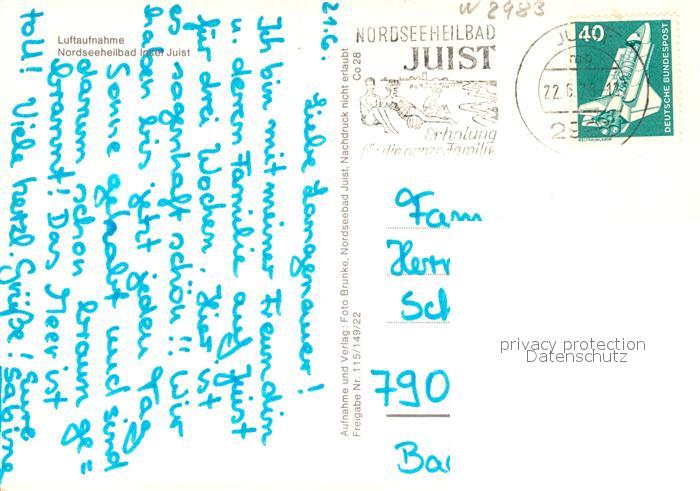 Luftaufnahme
Nordseeheilbad Insel Juist
21.6.
Liebe Langenauer!
Ich bin mit meiner Freundin
u. deren Familie auf Juist
für drei Wochen. Hier ist
es sagenhaft schön!! Wir
haben bis jetzt jeden Tag
Sonne gehabt und sind
darum schon braun ge=
brannt! Das Meer ist
toll! Viele herzl. Grüße! Eure
Sabine
Aufnahme und Verlag: Foto Brunke, Nordseebad Juist, Nachdruck nicht erlaubt
Freigabe Nr. 115/149/22
Co 28
W 2983
NORDSEEHEILBAD
JUIST
Erholung
für die ganze Familie
22.6.
40
DEUTSCHE BUNDESPOST
WELTRAUMLABOR
Fam
Herr
Sch
790
Ba
privacy protection
Datenschutz